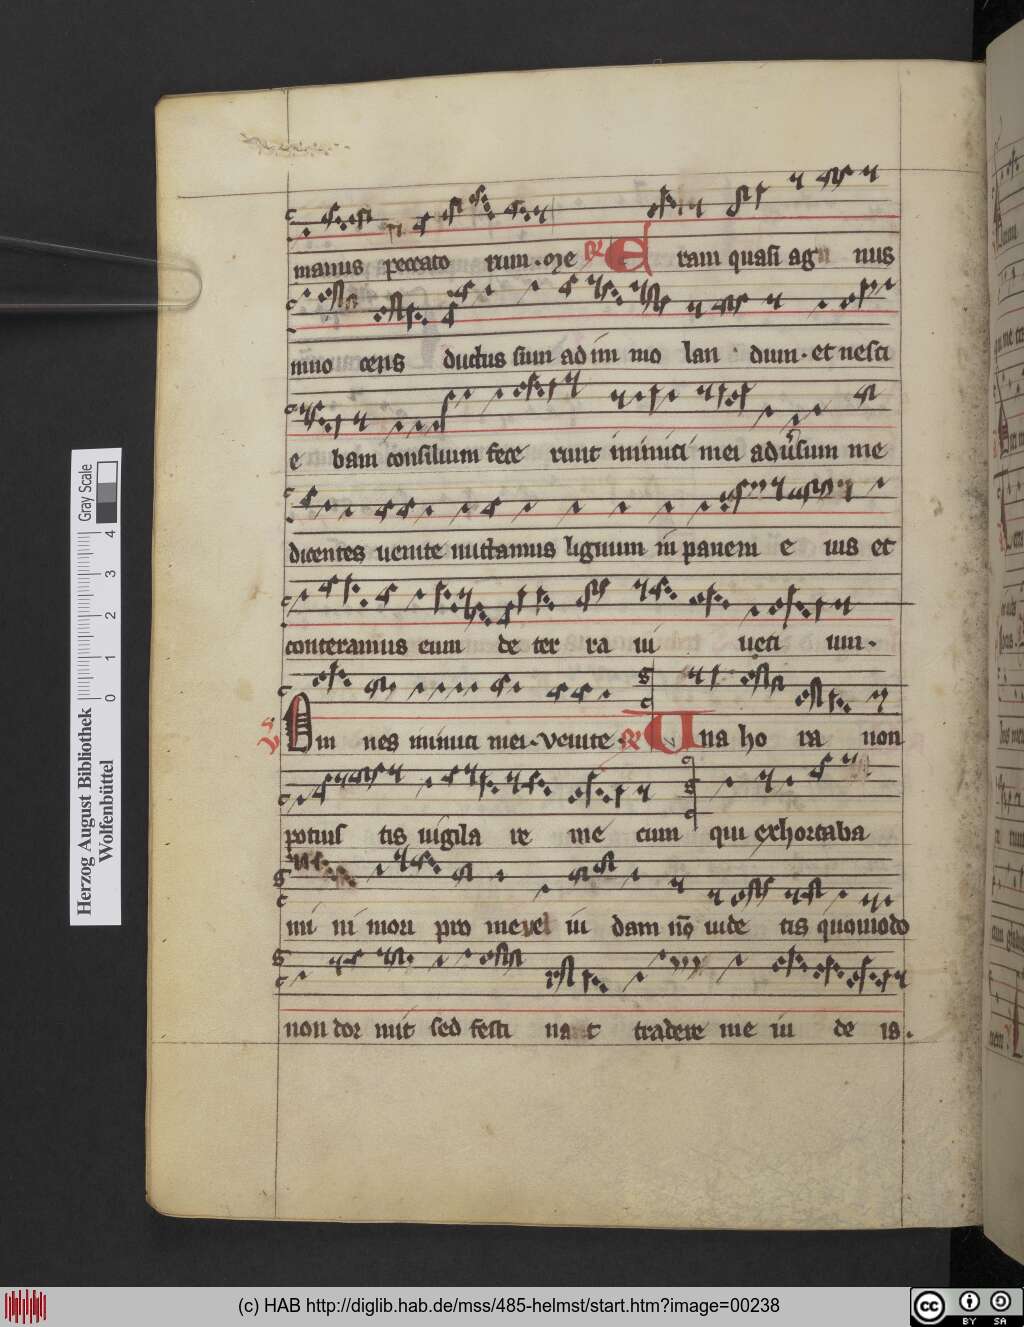 manus peccato rum . oze R E ram quasi ag nus
inno cens ductus sum ad im mo lan dum . et nesci
e bam consilium fece runt inimici mei adusum me
dicentes uenite mittamus lignum in panem e ius et
conteramus eum de ter ra ui uenti um .
Vs Om nes inimici mei . Venite R Una ho ra non
potuis tis uigila re me cum qui exhortaba
mi ni mori pro me vel iu dam no uide tis quomodo
non dor mit sed festi na t tradere me iu de is .
Gray Scale
0 1 2 3 4
Herzog August Bibliothek
Wolfenbüttel
(c) HAB http://diglib.hab.de/mss/485-helmst/start.htm?image=00238
cc BY SA